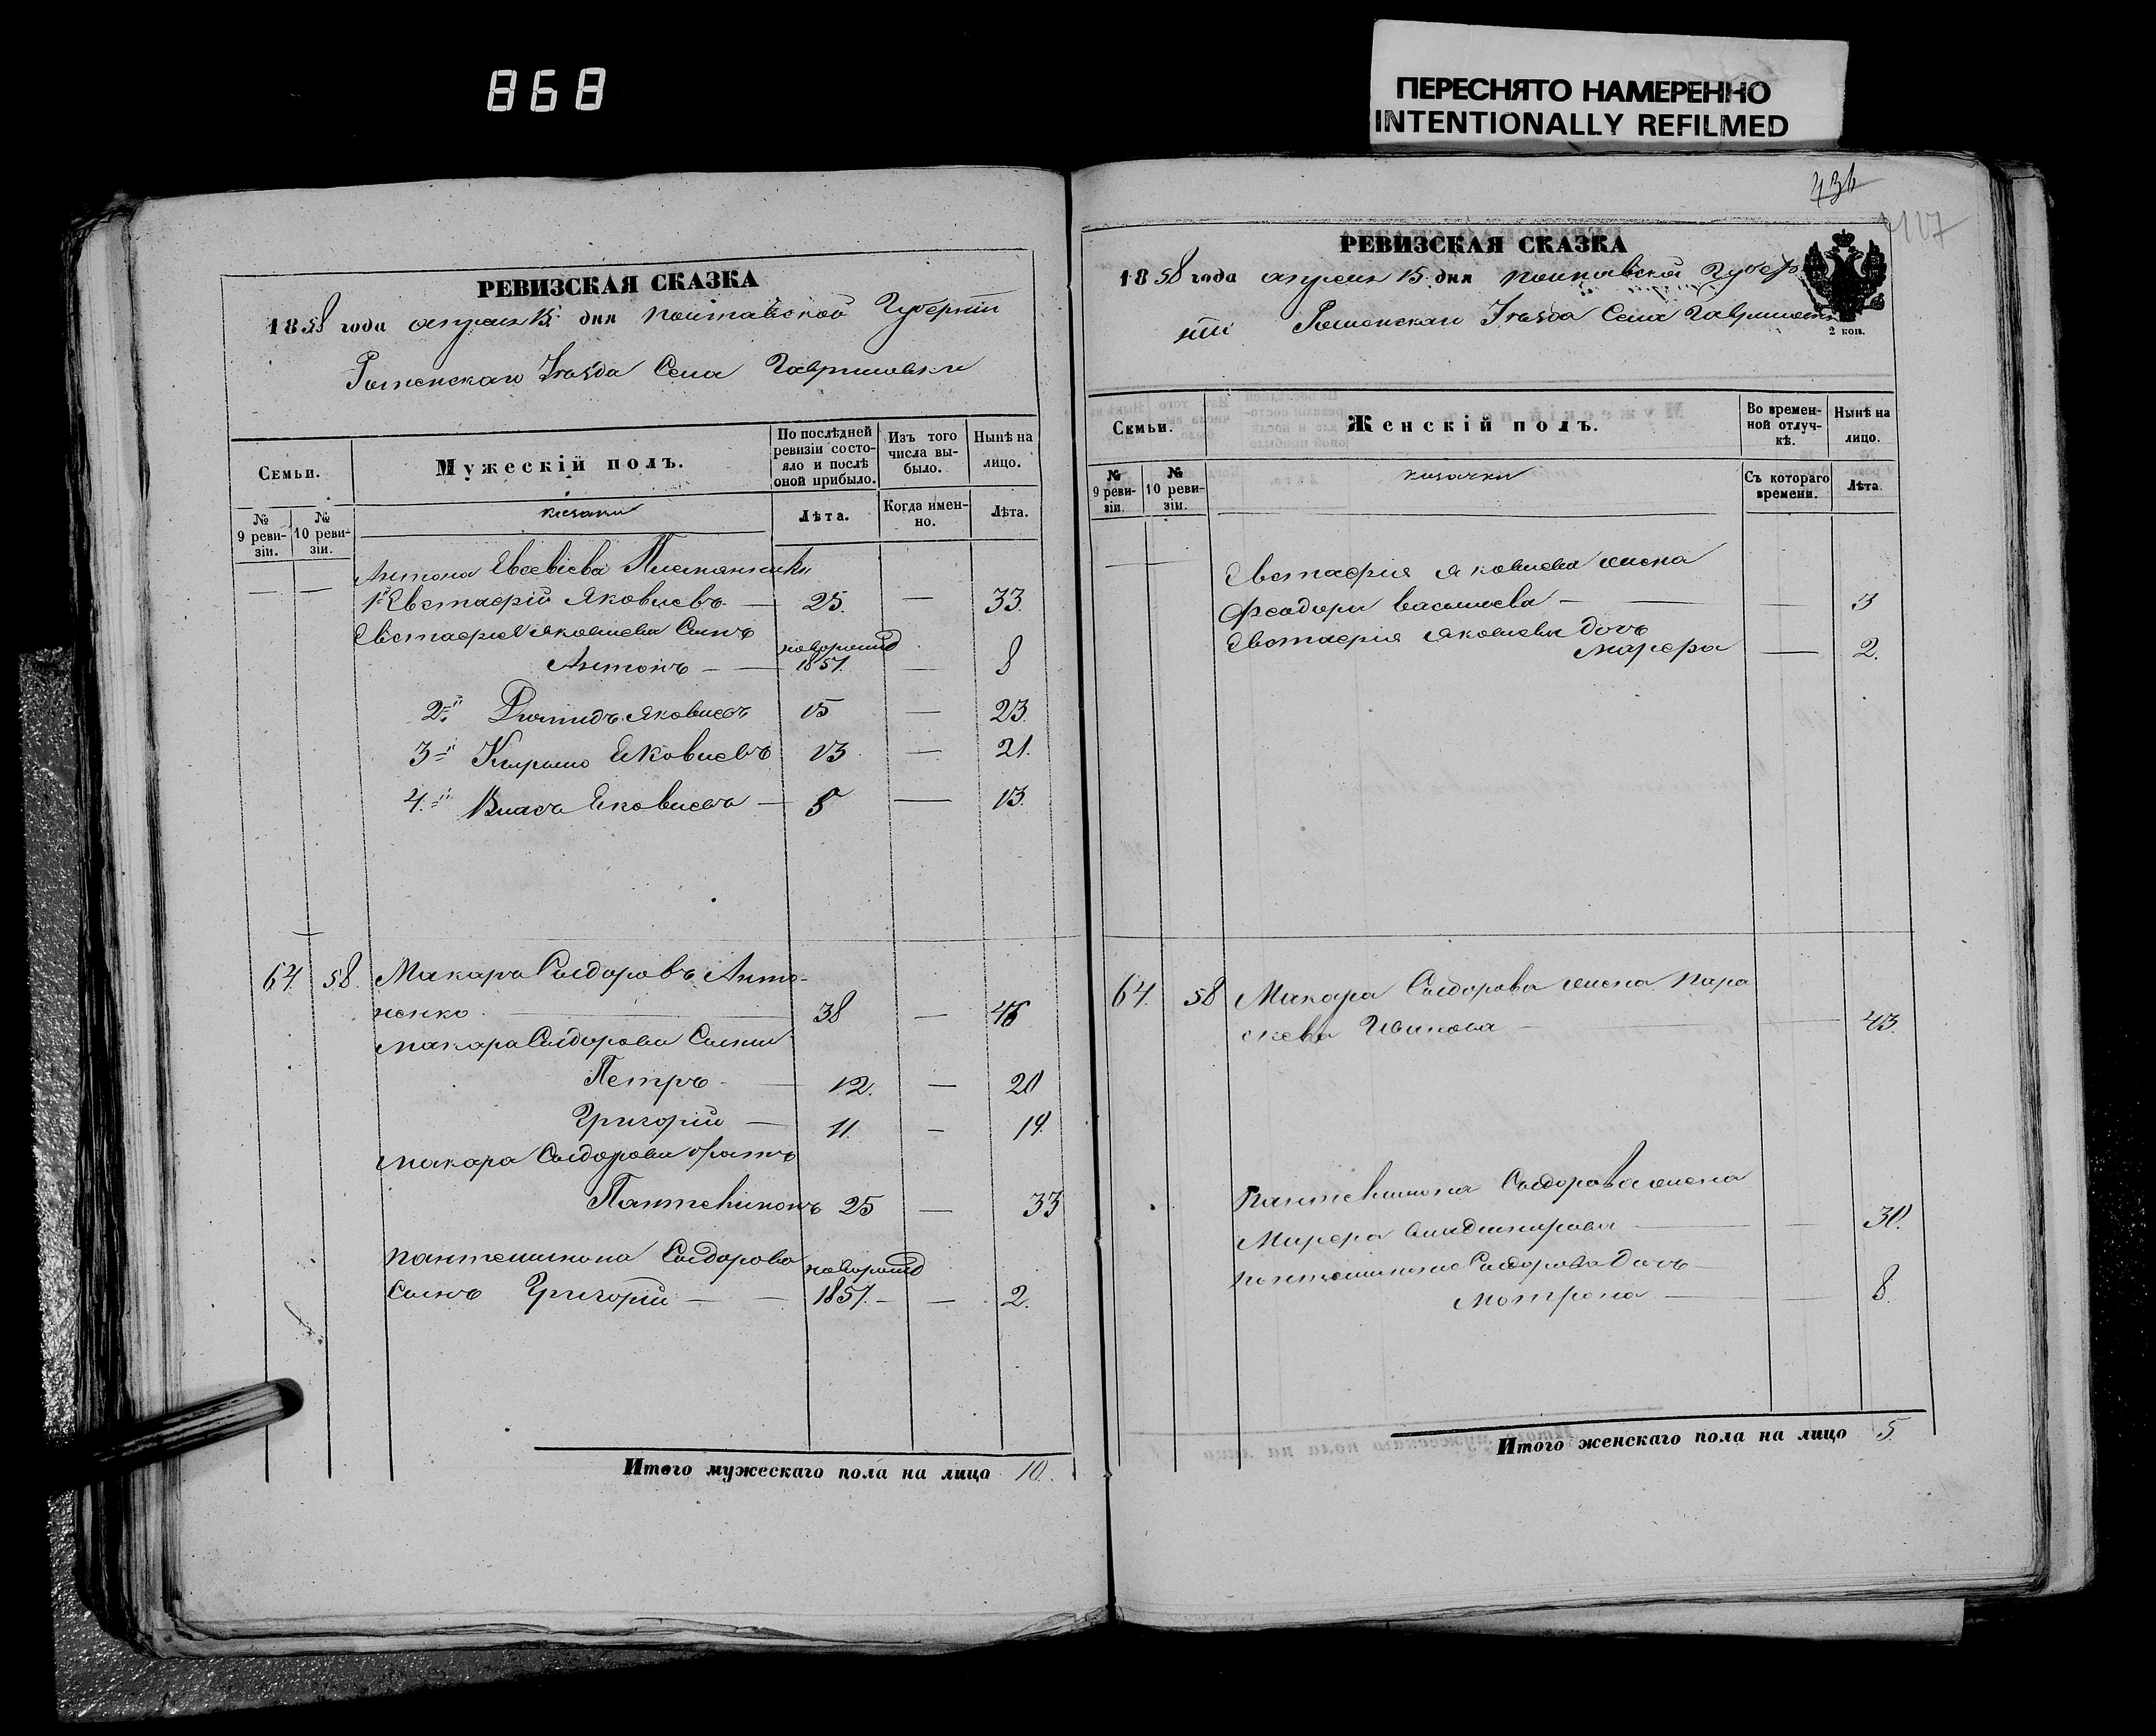 868
ПЕРЕСНЯТО НАМЕРЕННО
INTENTIONALLY REFILMED
РЕВИЗСКАЯ СКАЗКА
1858 года апреля 15 дня Полтавской Губернии
Роменскаго Уезда Села Гавришовки
Семьи.
Мужескій полъ.
По послѣдней ревизіи состояло и послѣ оной прибыло.
Изъ того числа выбыло.
Нынѣ на лицо.
№ 9 ревизіи.
№ 10 ревизіи.
козаки
Лѣта.
Когда именно.
Лѣта.
Антона Евсевіева Племянники
1й Евстафій Яковлевъ — 25. — 33.
Евстафія Яковлева Сынъ
Антонъ — новорожд 1851. — 8
2й Яковлевъ 15 — 23.
3й Яковлевъ 13 — 21.
4й Власъ Яковлевъ — 5 — 13.
64. 58. Макаръ Сыдоровъ Анто-
ненко — 38 — 46
Макара Сыдорова Сыны
Петръ — 12. — 20
Григорій — 11. — 19.
Макара Сыдорова братъ
Пантелимонъ 25 — 33
Пантелимона Сыдорова
Сынъ Григорій — новорожд 1857. — 2.
Итого мужескаго пола на лицо 10.
436
РЕВИЗСКАЯ СКАЗКА
1858 года апреля 15 дня Полтавской Губер
ніи Роменскаго Уезда Села
2 коп.
Семьи.
Женскій полъ.
Во временной отлучкѣ.
Нынѣ на лицо.
№ 9 ревизіи.
№ 10 ревизіи.
козачки
Съ котораго времени.
Лѣта.
Евстафия Яковлева жена
Феодора Васильева —
Евстафия Яковлева дочь
Марфа — 2.
64. 58 Макара Сыдорова жена Пара
скева Иванова — 43.
Пантелимона Сыдорова жена
Марфа — 30.
Пантелимона Сыдорова дочь
Мотрона — 8.
Итого женскаго пола на лицо 5.